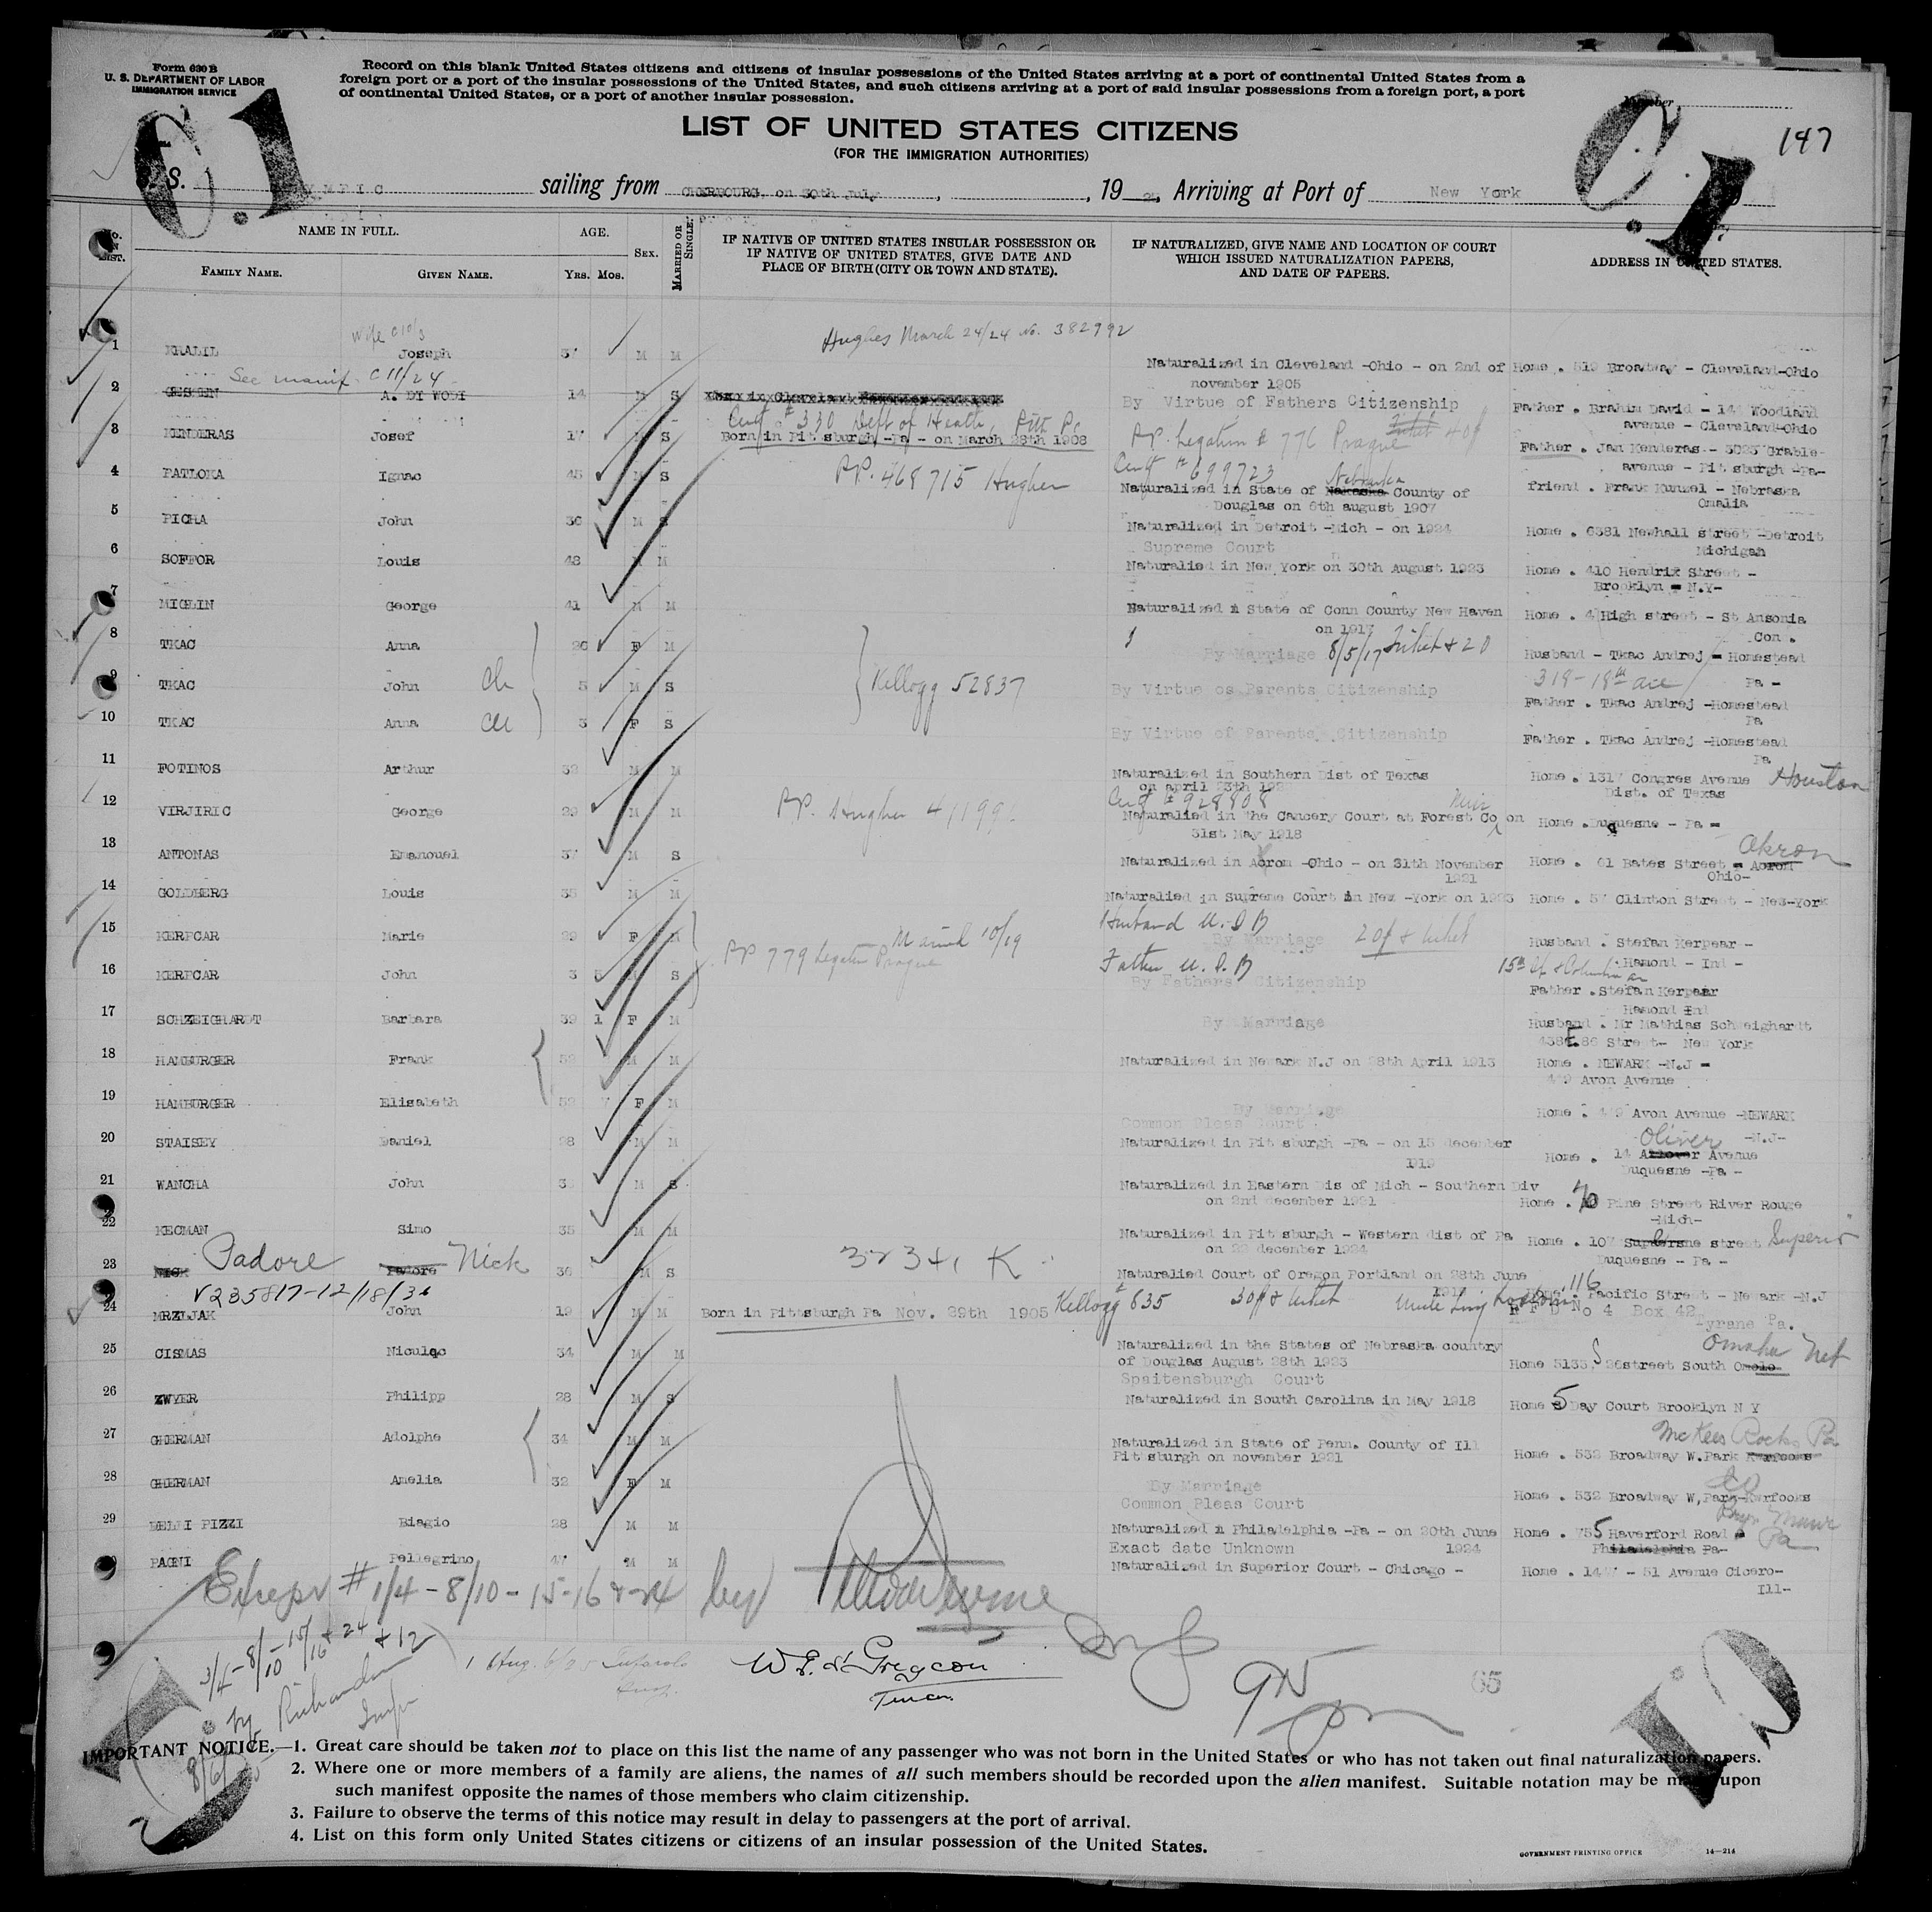 Form 630 B
U. S. DEPARTMENT OF LABOR
IMMIGRATION SERVICE
Record on this blank United States citizens and citizens of insular possessions of the United States arriving at a port of continental United States from a
foreign port or a port of the insular possessions of the United States, and such citizens arriving at a port of said insular possessions from a foreign port, a port
of continental United States, or a port of another insular possession.
Number
147
C.I
C.I
LIST OF UNITED STATES CITIZENS
(FOR THE IMMIGRATION AUTHORITIES)
S. YMPIC sailing from CHERBOURG, on 30th July, 19 25, Arriving at Port of New York
NAME IN FULL. AGE. SEX. MARRIED OR SINGLE.
FAMILY NAME. GIVEN NAME. YRS. MOS.
IF NATIVE OF UNITED STATES INSULAR POSSESSION OR
IF NATIVE OF UNITED STATES, GIVE DATE AND
PLACE OF BIRTH (CITY OR TOWN AND STATE).
IF NATURALIZED, GIVE NAME AND LOCATION OF COURT
WHICH ISSUED NATURALIZATION PAPERS,
AND DATE OF PAPERS.
ADDRESS IN UNITED STATES.
Wife C10/3
Hughes March 24/24 No. 382992
1 KRALIL Joseph 37 M M Naturalized in Cleveland -Ohio - on 2nd of Home . 519 Broadway - Cleveland-Ohio
november 1905
See manif. C 11/24
2 A. DI WODI 14 M S By Virtue of Fathers Citizenship Father . Brahim David - 144 Woodland
avenue - Cleveland-Ohio
Cert # 330 Dept of Health, Pitt Pa
3 KENDERAS Josef 17 M S Born in Pittsburgh,-Pa - on March 28th 1908 P.P. Legation # 776 Prague Father . Jan Kenderas - 3023 Grable
avenue - Pittsburgh -Pa-
Cert # 699723
4 PATLOKA Ignac 45 M S P.P. 468715 Hughes Naturalized in State of Nakaska Nebraska County of friend . Frank Kunzel - Nebraska
Douglas on 6th august 1907 Omalia
5 PICHA John 36 M S Naturalized in Detroit -Mich - on 1924 Home . 6381 Newhall street -Detroit
Michigan
Supreme Court
6 SOFFOR Louis 48 M M Naturalied in New York on 30th August 1923 Home . 410 Hendrix Street -
Brooklyn - N.Y-
7 MIGLIN George 41 M M Naturalized n State of Conn County New Haven Home . 4 High street - St Ansonia
on 1917 Con .
8 TKAC Anna 26 F M By Marriage 8/5/17 Ticket & 20 Husband - Tkac Andrej - Homestead
318 - 18th ave Pa -
9 TKAC John Ch 5 M S Kellogg 52837 By Virtue os Parents Citizenship Father . Tkac Andrej -Homestead
Pa
10 TKAC Anna Ch 3 F S By Virtue of Parents Citizenship Father . Tkac Andrej -Homestead
Pa
11 FOTINOS Arthur 32 M M Naturalized in Southern Dist of Texas Home . 1317 Congres Avenue Houston
on april 23th Dist. of Texas
Cert # 928808
12 VIRJIRIC George 29 M M P.P. Hughes Naturalied in the Cancery Court at Forest Co on Home .Duquesne - Pa -
31st May 1918
13 ANTONAS Emanouel 37 M S Naturalized in Acrom -Ohio - on 31th November Home . 61 Bates Street - Acrom Akron
1921 Ohio-
14 GOLDBERG Louis 35 M M Naturalied in Supreme Court in New -York on 1923 Home . 57 Clinton Street - New-York
Husband U.S B
15 KERPCAR Marie 29 F M Married 10/19 By Marriage 20$ & ticket Husband . Stefan Kerpear -
PP 779 Legation Prague Hamond - Ind -
Father U.S. B
16 KERPCAR John 3 5 M S By Fathers Citizenship Father .Stefan Kerpear
Hamond Ind
17 SCHZEIGHARDT Barbara 39 1 F M By Marriage Husband . Mr Mathias Schweighardt
438 E. 86 Street- New York
18 HAMBURGER Frank 52 M M Naturalized in Newark N.J on 28th April 1913 Home . NEWARK -N.J -
449 Avon Avenue
19 HAMBURGER Elisabeth 52 7 F M By Marriage Home . 449 Avon Avenue -NEWARK
-N.J-
Common Pleas Court
20 STAISEY Daniel 28 M M Naturalized in Pittsburgh -Pa - on 15 december Home . 14 Oliver Avenue
1919 Duquesne -Pa -
21 WANCHA John M S Naturalized in Eastern Dis of Mich - Southern Div
on 2nd december 1921 Home . 70 Pine Street River Rouge
-Mich-
22 KECMAN Simo 35 M M Naturalized in Pittsburgh - Western dist of Pa Home . 107 street Superior
on 29 december 1924 Duquesne - Pa -
23 NICK Padore Padore Nick 36 M S 3234, K Naturalied Court of Oregon Portland on 28th June
Home . 116 Pacific Street - Newark -N.J
V235817-12/18/36
24 MRZLJAK John 19 M M Born in Pittsburgh Pa Nov. 29th 1905 Kellogg # 635 30$ & ticket R F D No 4 Box 42
Tyrane Pa.
25 CISMAS Niculae 34 M M Naturalized in the States of Nebraska country
of Douglas August 28th 1923 Home 5133 S 26street South Omaha Neb
Spaitensburgh Court
26 ZWYER Philipp 28 M S Naturalized in South Carolina in May 1918 Home 5 Day Court Brooklyn N Y
27 GHERMAN Adolphe 34 M M Naturalized in State of Penn. County of Ill McKees Rocks Pa
Pittsburgh on november 1921 Home . 532 Broadway W.Park Kerfooks
28 GHERMAN Amelia 32 F M By Marriage Home . 532 Broadway W,Park-Kerfooks
Common Pleas Court
29 DELLI PIZZI Biagio 28 M M Naturalized n Philadelphia -Pa - on 20th June Home . 755 Haverford Road Bryn Mawr
1924 Philadelphia Pa- Pa
Exact date Unknown
30 PAGNI Pellegrino 47 M M Naturalized in Superior Court - Chicago - Home . 1447 - 51 Avenue Cicero-
Ill-
Except # 1/4 - 8/10 - 15-16 & 24 by
3/4 - 8/10 - 15/16 & 24 + 12
by Richardson
Insp
8/6/25
65
IMPORTANT NOTICE.—1. Great care should be taken not to place on this list the name of any passenger who was not born in the United States or who has not taken out final naturalization papers.
2. Where one or more members of a family are aliens, the names of all such members should be recorded upon the alien manifest. Suitable notation may be made upon
such manifest opposite the names of those members who claim citizenship.
3. Failure to observe the terms of this notice may result in delay to passengers at the port of arrival.
4. List on this form only United States citizens or citizens of an insular possession of the United States.
GOVERNMENT PRINTING OFFICE 14—214